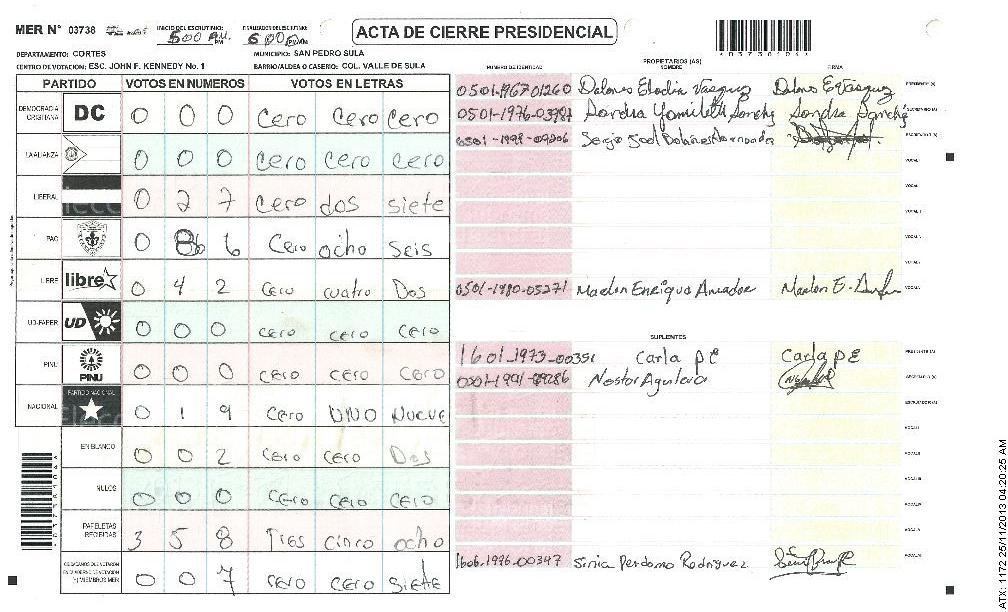 MER N° 03738 INICIO DEL ESCRUTINIO: 500 PM FINALIZACION DEL ESCRUTINIO: 600 PM ACTA DE CIERRE PRESIDENCIAL
DEPARTAMENTO: CORTES MUNICIPIO: SAN PEDRO SULA
CENTRO DE VOTACION: ESC. JOHN F. KENNEDY No. 1 BARRIO/ALDEA O CASERIO: COL. VALLE DE SULA
PARTIDO VOTOS EN NUMEROS VOTOS EN LETRAS
DEMOCRACIA CRISTIANA DC 0 0 0 Cero Cero Cero
LA ALIANZA 0 0 0 cero cero cero
LIBERAL 0 2 7 Cero dos siete
PAC 0 8 6 Cero ocho seis
LIBRE libre 0 4 2 cero cuatro Dos
UD-FAPER UD 0 0 0 cero cero cero
PINU PINU 0 0 0 cero cero cero
NACIONAL PARTIDO NACIONAL 0 1 9 Cero UNO NUEVE
EN BLANCO 0 0 2 cero cero Dos
NULOS 0 0 0 cero cero cero
PAPELETAS RECIBIDAS 3 5 8 Tres cinco ocho
0 0 7 cero cero siete
PROPIETARIOS (AS)
NUMERO DE IDENTIDAD NOMBRE FIRMA
0501-1967-01260 Dolores Elodia Vasquez Dolores E Vasquez
0501-1976-03787 Sondra Yamileth Sanchz Sondra Sanchz
0501-1991-09206 Sergio Joel
0501-1980-05271 Marlon Enrique Amador Marlon E.
SUPLENTES
1601-1973-00351 Carla PE Carla PE
Nestor Aguilera
1606-1996-00347 Sinia Perdomo Rodriguez
ATX: 1172 25/11/2013 04:20:25 AM